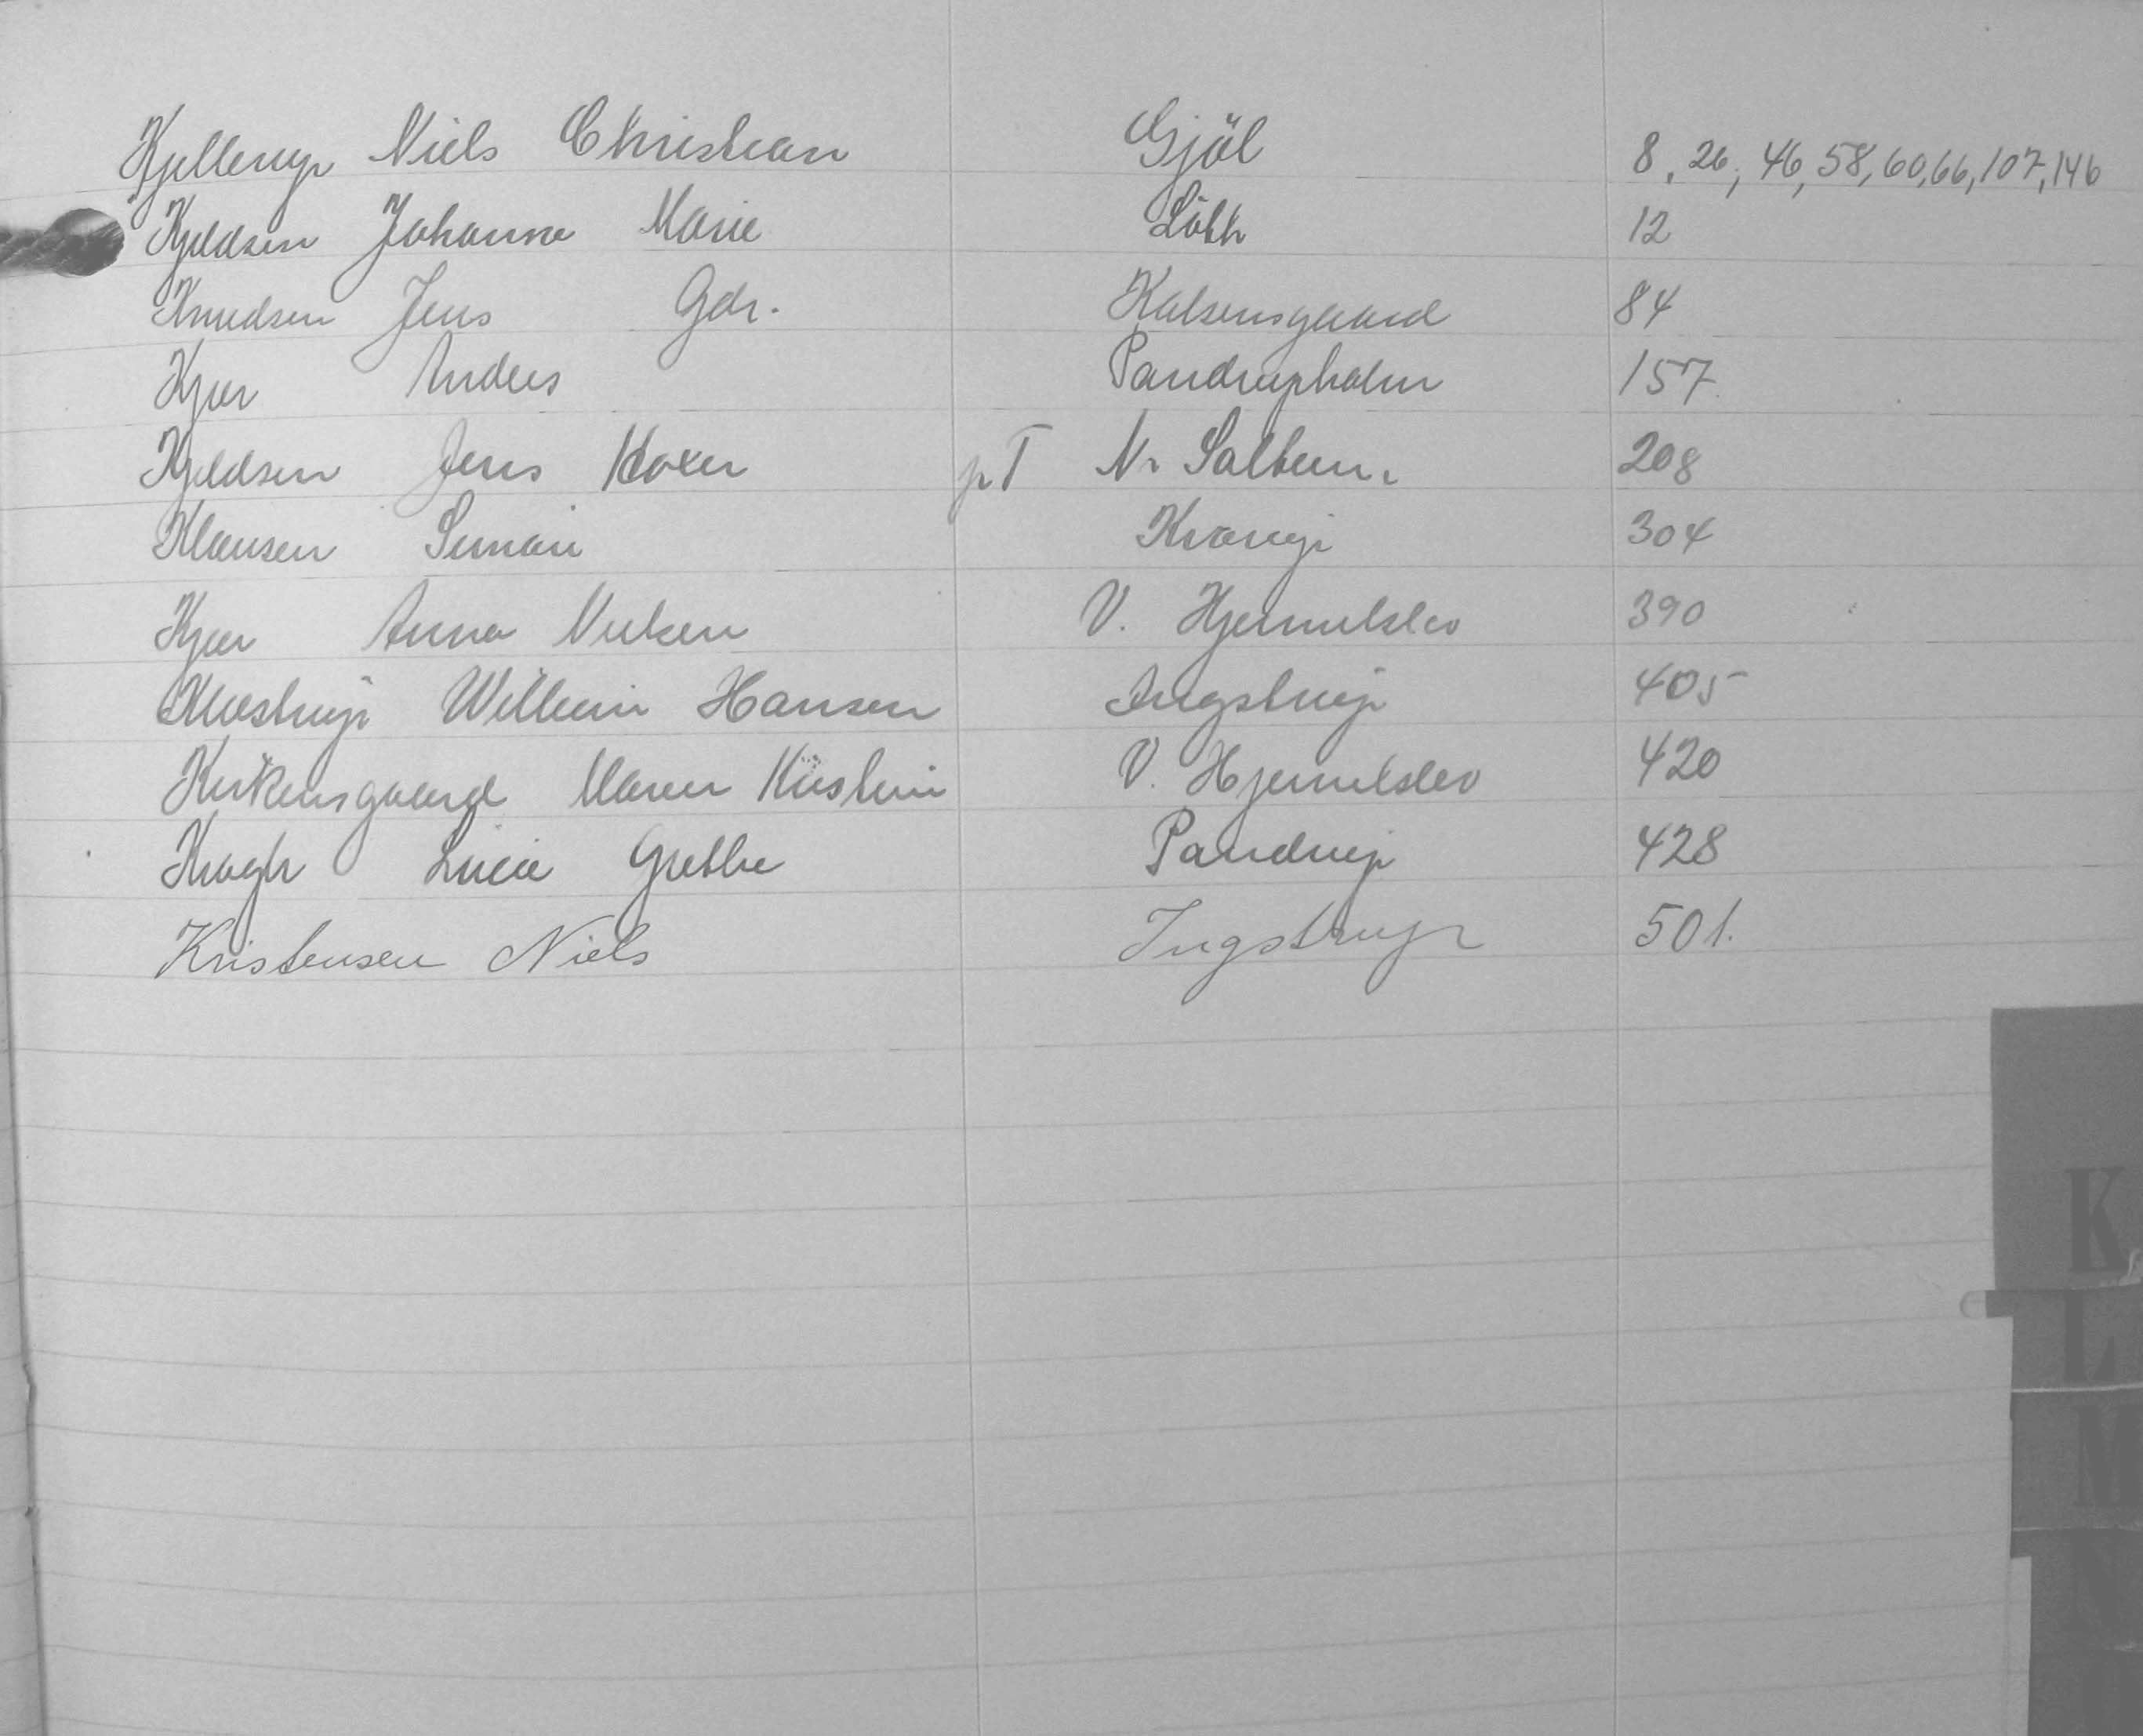 Kjellerup Niels Christian Gjöl 8, 26, 46, 58, 60, 66, 107, 146
Kjeldsen Johanne Marie Lökk 12
Knudsen Jens Gdr. Kalsensgaard 84
Kjær Anders Pandrupholm 157
Kjeldsen Jens p T Nr Saltum. 208
Klausen Simon Kvorup 304
Kjær Anna Nielsen V. Hjermitslev 390
Klostrup Willum Hansen Ingstrup 405
Kirkensgaard Maren Kirstine V. Hjermitslev 420
Kragh Lucie Grethe Pandrup 428
Kristensen Niels Ingstrup 501.
K
L
M